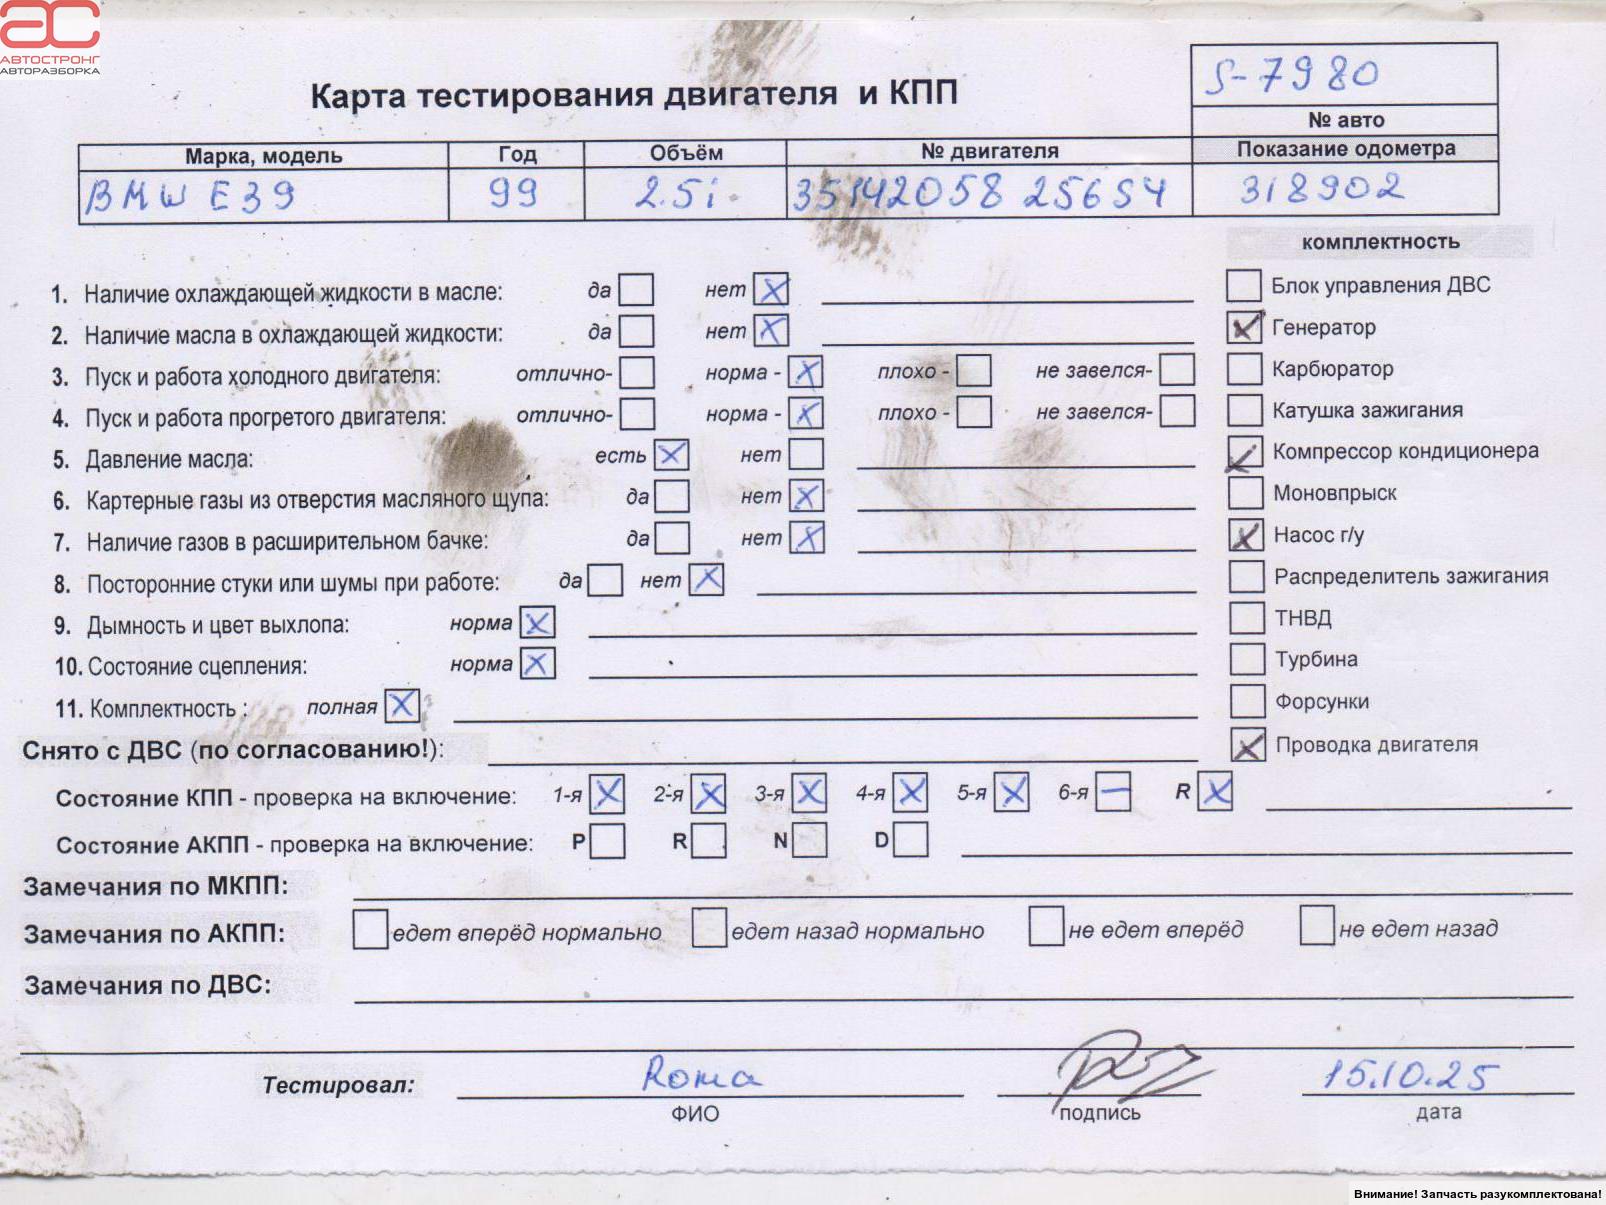 АС
АВТОСТРОНГ
АВТОРАЗБОРКА
Карта тестирования двигателя и КПП
S-7980
№ авто
Марка, модель Год Объём № двигателя Показание одометра
BMW E39 99 2.5i 35142058 256S4 318902
комплектность
1. Наличие охлаждающей жидкости в масле: да нет X
2. Наличие масла в охлаждающей жидкости: да нет X
3. Пуск и работа холодного двигателя: отлично- норма - X плохо - не завелся-
4. Пуск и работа прогретого двигателя: отлично- норма - X плохо - не завелся-
5. Давление масла: есть X нет
6. Картерные газы из отверстия масляного щупа: да нет X
7. Наличие газов в расширительном бачке: да нет X
8. Посторонние стуки или шумы при работе: да нет X
9. Дымность и цвет выхлопа: норма X
10. Состояние сцепления: норма X
11. Комплектность : полная X
Блок управления ДВС
Генератор
Карбюратор
Катушка зажигания
Компрессор кондиционера
Моновпрыск
Насос г/у
Распределитель зажигания
ТНВД
Турбина
Форсунки
Проводка двигателя
Снято с ДВС (по согласованию!):
Состояние КПП - проверка на включение: 1-я X 2-я X 3-я X 4-я X 5-я X 6-я — R X
Состояние АКПП - проверка на включение: P R N D
Замечания по МКПП:
Замечания по АКПП: едет вперёд нормально едет назад нормально не едет вперёд не едет назад
Замечания по ДВС:
Тестировал: Roma 15.10.25
ФИО подпись дата
Внимание! Запчасть разукомплектована!